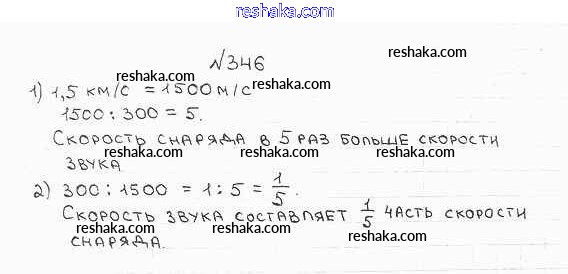 reshaka.com
№346
reshaka.com
reshaka.com
1) 1,5 км/с = 1500 м/с
reshaka.com reshaka.com
1500 : 300 = 5.
Скорость снаряда в 5 раз больше скорости
reshaka.com reshaka.com reshaka.com
звука
2) 300 : 1500 = 1 : 5 = 1/5.
reshaka.com reshaka.com reshaka.com
Скорость звука составляет 1/5 часть скорости
reshaka.com reshaka.com reshaka.com
снаряда.
reshaka.com